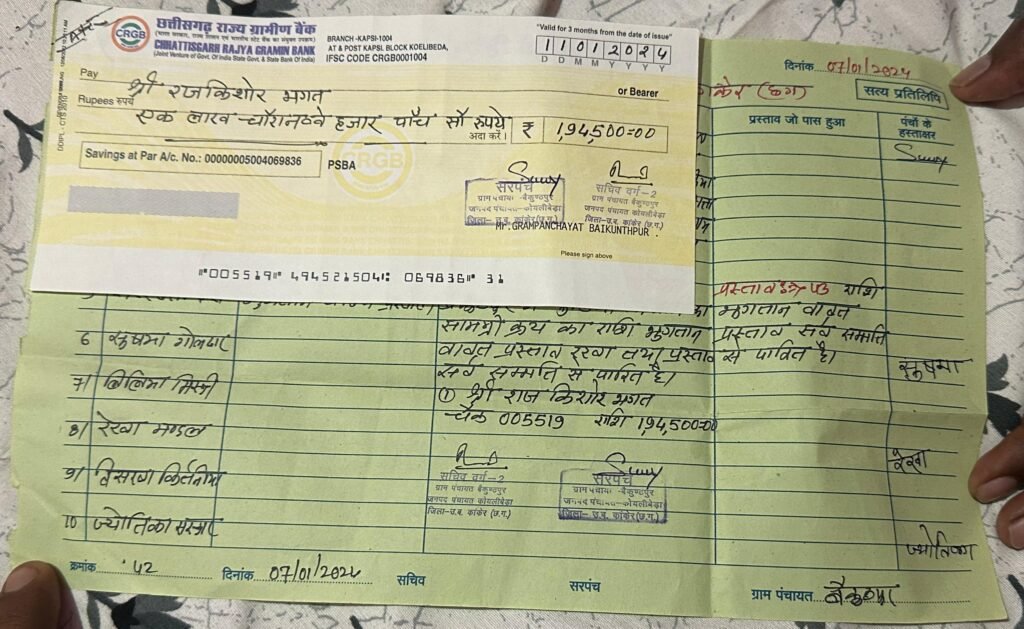 छत्तीसगढ़ राज्य ग्रामीण बैंक
CHHATTISGARH RAJYA GRAMIN BANK
(Joint Venture of Govt. Of India State Govt. & State Bank Of India)
CRGB
BRANCH -KAPSI-1004
AT & POST KAPSI, BLOCK KOELIBEDA,
IFSC CODE CRGB0001004
"Valid for 3 months from the date of issue"
11012024
D D M M Y Y Y Y
Pay श्री राजकिशोर भगत or Bearer
Rupees रुपये एक लाख चौरानठवे हजार पाँच सौ रुपये
अदा करें। ₹ 1,94,500=00
Savings at Par A/c. No.: 00000005004069836 PSBA
CRGB
सरपंच
ग्राम पंचायत -बैकुण्ठपुर
जनपद पंचायत -कोयलीबेड़ा
जिला- उ.ब. कांकेर(छ.ग.)
सचिव वर्ग-2
ग्राम पंचायत बैकुण्ठपुर
जनपद पंचायत कोयलीबेड़ा
जिला-उ.ब. कांकेर(छ.ग.)
MP.GRAMPANCHAYAT BAIKUNTHPUR .
Please sign above
"005519" 494521504: 069836" 31
दिनांक 07/01/2024
(छग)
सत्य प्रतिलिपि
प्रस्ताव जो पास हुआ
पंचों के
हस्ताक्षर
राशि
भुगतान वावत
प्रस्ताव सर्व सम्मति
से पारित है।
सामग्री क्रय का राशि भुगतान
वावत प्रस्ताव रखा तथा प्रस्ताव
सर्व सम्मति से पारित है।
① श्री राज किशोर भगत
चैक 005519 राशि 1,94,500=00
6 सुषमा गोलदार
सुषमा
7/
8/ रेखा मण्डल
रेखा
9/
10 ज्योतिका
ज्योतिका
सचिव वर्ग-2
ग्राम पंचायत बैकुण्ठपुर
जनपद पंचायत कोयलीबेड़ा
जिला-उ.ब. कांकेर(छ.ग.)
सरपंच
ग्राम पंचायत -बैकुण्ठपुर
जनपद पंचायत -कोयलीबेड़ा
जिला- उ.ब. कांकेर(छ.ग.)
क्रमांक 42 दिनांक 07/01/2024 सचिव सरपंच ग्राम पंचायत